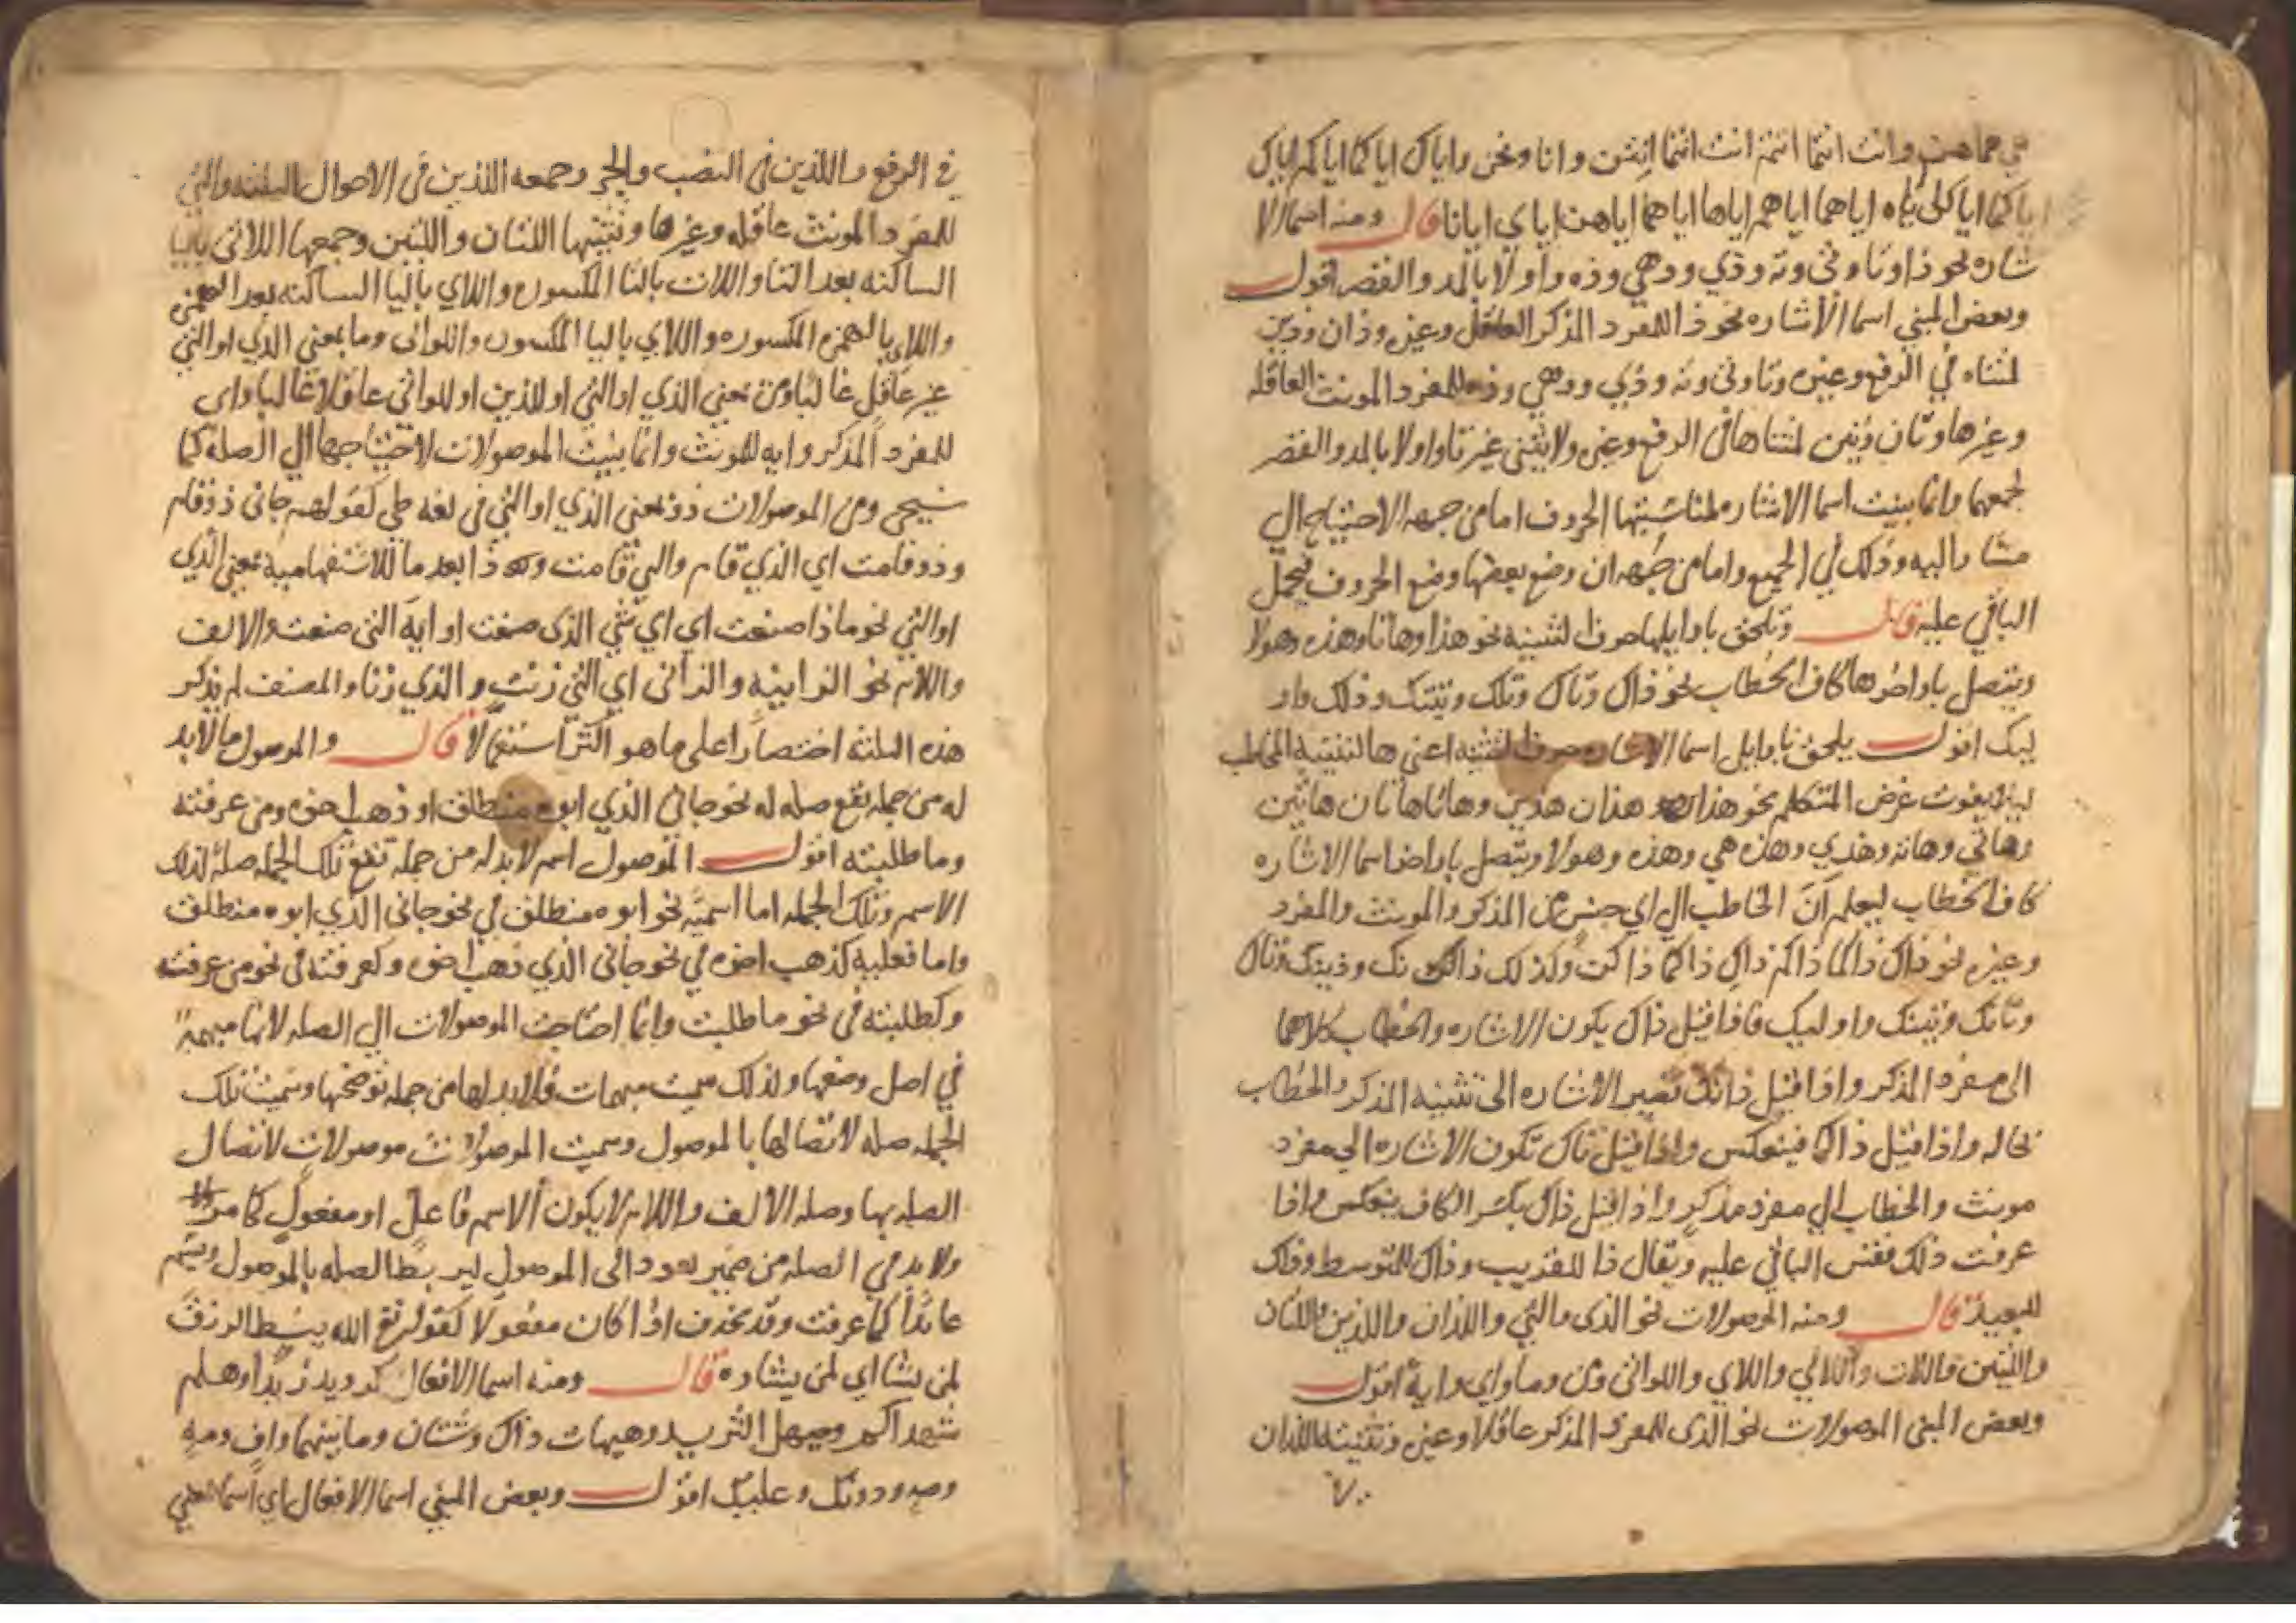 هي هما هن وانت انتما انتم انت انتما انتن وانا ونحن واياك اياكما اياكم اياك
اياكما اياكن اياه اياهما اياهم اياها اياهما اياهن اياي ايانا قال ومنه اسما الا
شاره نحو ذا وتا وتي وته وذي ودهي وذه واولا بالمد والقصر اقول
وبعض المبني اسما الاشاره نحو ذا للمفرد المذكر العاقل وغيره وذان وذين
لمثناه في الرفع وغيره وتا وتي وته وذي ودهي وذه للمفرد المونث العاقله
وغيرها وتان وتين لمثناها في الرفع وغيره ولا يثنى غير تا واولا بالمد والقصر
لجمعهما وانما بنيت اسما الاشاره لمناسبتها الحروف اما من جهه الاحتياج الي
مشار اليه وذلك في الجميع واما من جهه ان وضع بعضها وضع الحروف فيحمل
الباقي عليه قال وتلحق باوايلها حرف التنبيه نحو هذا وهاتا وهذه وهولا
ويتصل باواخرها كاف الخطاب نحو ذاك وتاك وتلك وتيتك وذلك واو
ليك اقول يلحق باوايل اسما الاشاره حرف التنبيه اعني ها لتنبيه المخاطب
ليلا يفوت غرض المتكلم نحو هذا هذان هذين وهاتا هاتان هاتين
وهاتي وهاته وهذي وهذهي وهذه وهولا ويتصل باواخر اسما الاشاره
كاف الخطاب ليعلم ان الخاطب الي اي جنس من المذكر والمونث والمفرد
وغيره نحو ذاك ذاكما ذاكم ذاك ذاكما ذاكن وكذلك ذانك وذينك وتاك
وتانك وتينك واوليك فاذا قيل ذاك يكون الاشاره والخطاب كلاهما
الى مفرد المذكر واذا قيل ذانك تصير الاشاره الى تثنيه المذكر والخطاب
بحاله واذا قيل ذاكما فينعكس واذا قيل تاك تكون الاشاره الي مفرد
مونث والخطاب الي مفرد مذكر واذا قيل ذاك بكسر الكاف ينعكس واذا
عرفت ذلك فقس الباقي عليه ويقال ذا للقريب وذاك للمتوسط وذلك
للبعيد قال ومنه الموصولات نحو الذى والتي واللذان واللذين واللتان
واللتين واللات واللاتي واللاي واللواتي ومن وما واي وايه اقول
وبعض المبنى الموصولات نحو الذى للمفرد المذكر عاقلا وغيره وتثنيته اللذان
في الرفع واللذين في النصب والجر وجمعه اللذين في الاحوال الثلثه والتي
للمفرد المونث عاقله وغيرها وتثنيتها اللتان واللتين وجمعها اللاتي باليا
الساكنه بعد التا واللات بالتا المكسوره واللاي باليا الساكنه بعد الهمزه
واللاء بالهمزه المكسوره واللاي باليا المكسوره واللواتى وما بمعنى الذي او التي
غير عاقل غالبا ومن بمعني الذي او التي او الذين او اللواتي عاقلا غالبا واي
للمفرد المذكر وايه للمونث وانما بنيت الموصولات لاحتياجها الي الصله كما
سيجى ومن الموصولات ذو بمعني الذي او التي في لغه طي كقولهم جاني ذو قام
وذو قامت اي الذي قام والتي قامت وذا بعد ما للاستفهاميه بمعنى الذي
او التي نحو ماذا صنعت اي اي شي الذى صنعت او ايه التى صنعت والالف
واللام نحو الزانيه والزانى اي التي زنت والذي زنا والمصنف لم يذكر
هذه الثلثه اختصارا على ما هو اكثر استعمالا قال والموصول ما لابد
له من جمله تقع صله له نحو جاني الذي ابوه منطلق او ذهب اخوه ومن عرفته
وما طلبته اقول الموصول اسم لابد له من جمله تقع تلك الجمله صله لذلك
الاسم وتلك الجمله اما اسميه نحو ابوه منطلق في نحو جاني الذي ابوه منطلق
واما فعليه كذهب اخوه في نحو جاني الذي ذهب اخوه وكعرفته في نحو من عرفته
وكطلبته في نحو ما طلبت وانما احتاجت الموصولات الي الصله لانها مبهمة
في اصل وضعها ولذلك سميت مبهمات فلابد لها من جمله توضحها وسميت تلك
الجمله صله لاتصالها بالموصول وسميت الموصولات موصولات لاتصال
الصله بها وصله الالف واللام لا يكون الا اسم فاعل او مفعول كما مر
ولابد في الصله من ضمير يعود الى الموصول ليربط الصله بالموصول ويسم
عايدا كما عرفت وقد يحذف اذا كان مفعولا كقوله تع الله يبسط الرزق
لمن يشا اي لمن يشاوه قال ومنه اسما الافعال كرويد زيدا وهلم
شهداكم وحيهل الثريد وهيهات ذاك وشتان وما بينهما واف ومه
وصه ودونك وعليك اقول وبعض المبني اسما الافعال اي اسما بمعني